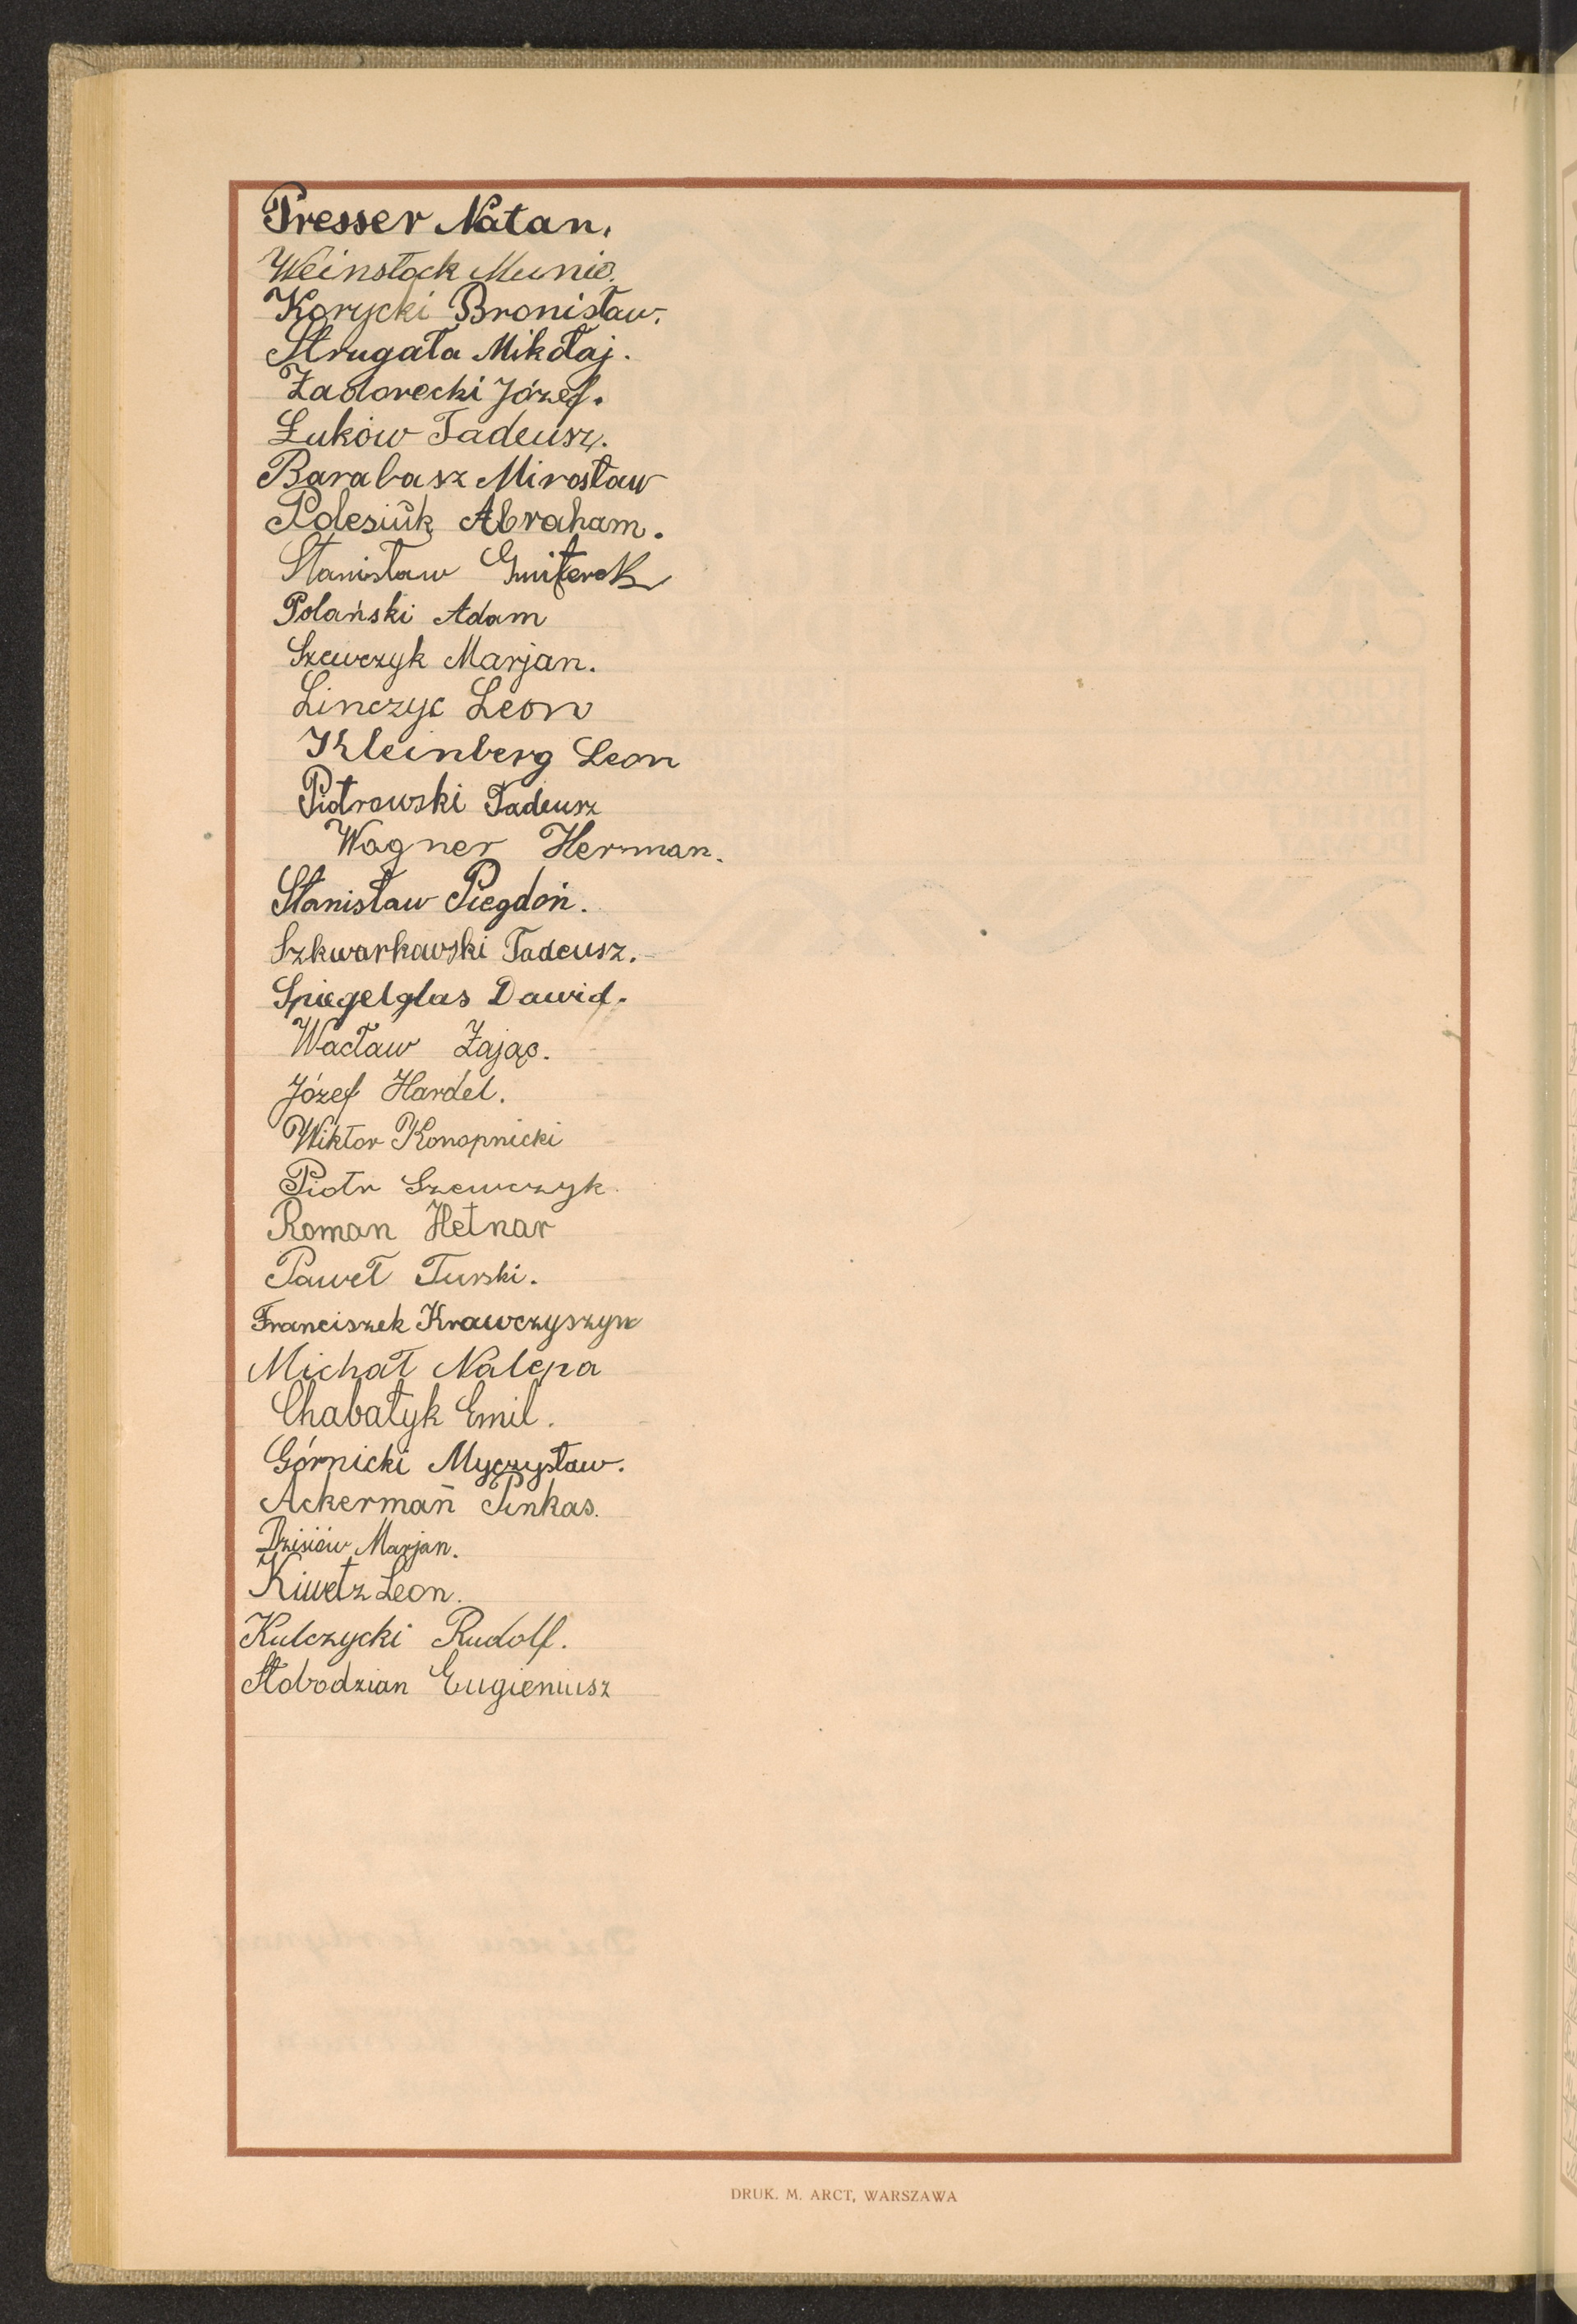 Presser Natan.
Weinstock Munio.
Korycki Bronisław.
Strugała Mikołaj.
Zadorecki Józef.
Łuków Tadeusz.
Barabasz Mirosław
Polesiŭk Abraham.
Stanisław Gmiterek
Polański Adam
Szewczyk Marjan.
Linczyc Leon
Kleinberg Leon
Piotrowski Tadeusz
Wagner Herman.
Stanisław Piegdoń.
Szkwarkowski Tadeusz.
Spiegelglas Dawid.
Wacław Zając.
Józef Hardel.
Wiktor Konopnicki
Piotr Szewczyk.
Roman Hetnar
Paweł Turski.
Franciszek Krawczyszyn
Michał Nalepa
Chabałyk Emil.
Górnicki Myczysław.
Ackermañ Pinkas.
Dzisiów Marjan.
Kiwetz Leon.
Kulczycki Rudolf.
Słobodzian Eugieniusz
DRUK. M. ARCT, WARSZAWA